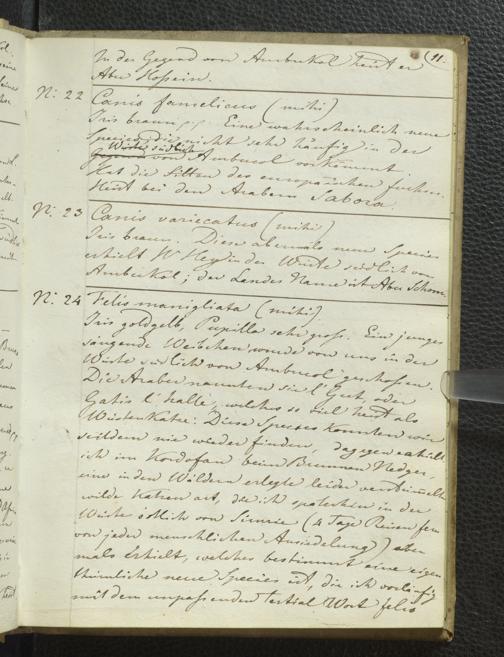 (11.
In der Gegend von Ambukol heist er
Abu Hossein.
N: 22 Canis famelicus (mihi)
Iris braun, Eine wahrscheinlich neue
Species die nicht sehr häufig in der
Wüste südlich
von Ambucol vorkommt.
Hat die Sitten des europaeischen fuchses.
Heist bei den Arabern Sabora.
N: 23 Canis variecatus (mihi)
Iris braun. Diese abermals neue Species
erhielt H Hey in der Wüste südlich von
Ambukol; der Landes Name ist Abu Schom
N: 24 Felis maniguliata (mihi)
Iris goldgelb, Pupilla sehr gross. Ein junges
saugende Weibchen wurde von uns in der
Wüste südlich von Ambucol geschossen.
Die Araber nannten sie l' Gut, oder
Gatis l' halle, welches so viel heist als
Wüsten Katze. Diese Species konnten wir
seitdem nie wieder finden, dagegen erhielt
ich im Kordofan beim Brunnen Nedger,
eine in den Wäldern erlegte leider verstümelte
wilde Katzen art, die ich spaterhin in der
Wüste östlich von Simrie (4 Tage Reisen fern
von jeder menschlichen Ansiedelung) aber
mals erhielt, welches bestimmt eine eigen
thümliche neue Species ist, die ich vorläufig
mit dem unpassenden Wort felis